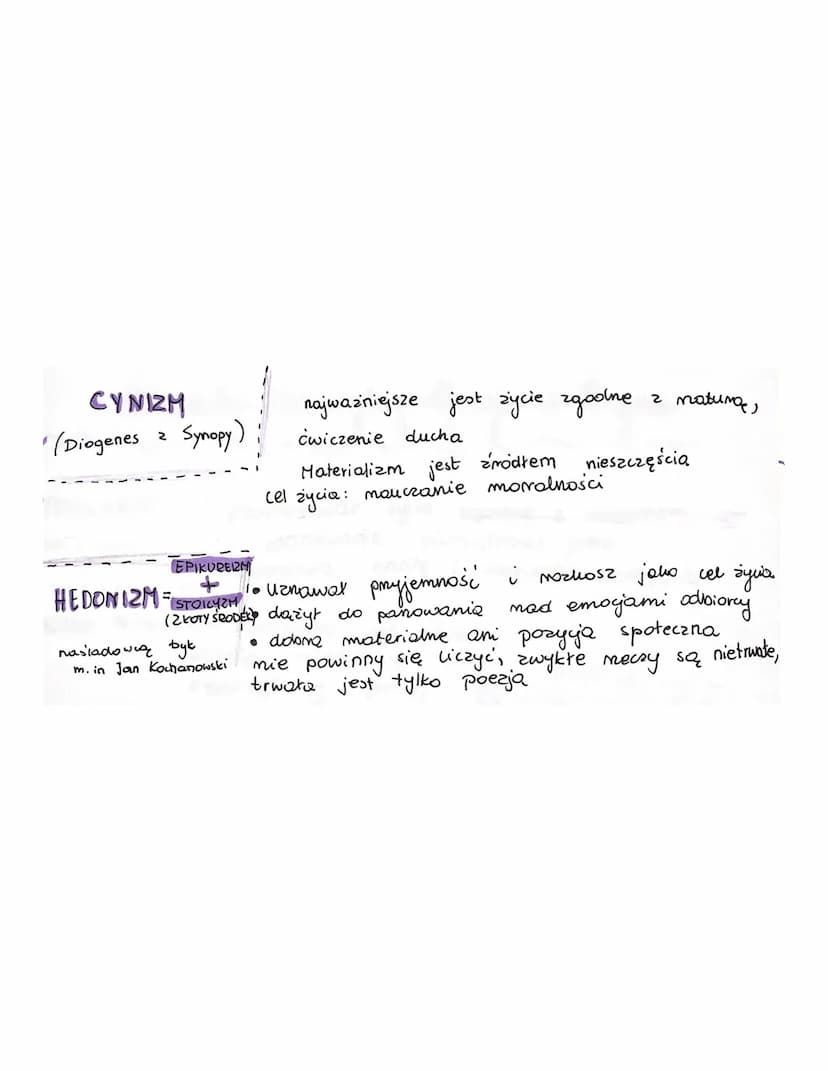 CYNIZM
(Diogenes z Synopy)
najważniejsze jest życie zgodne z naturą,
ćwiczenie ducha
Materializm jest źródłem nieszczęścia
cel życia: nauczanie moralności
HEDONIZM = EPIKUREIZM
+
STOICYZM
(ZŁOTY ŚRODEK)
naśladowcą był
m.in Jan Kochanowski
• Uznawał przyjemność i rozkosz jako cel życia
• dążył do panowania nad emocjami odbiorcy
• dobra materialne ani pozycja społeczna
nie powinny się liczyć, zwykłe rzeczy są nietrwałe,
trwała jest tylko poezja